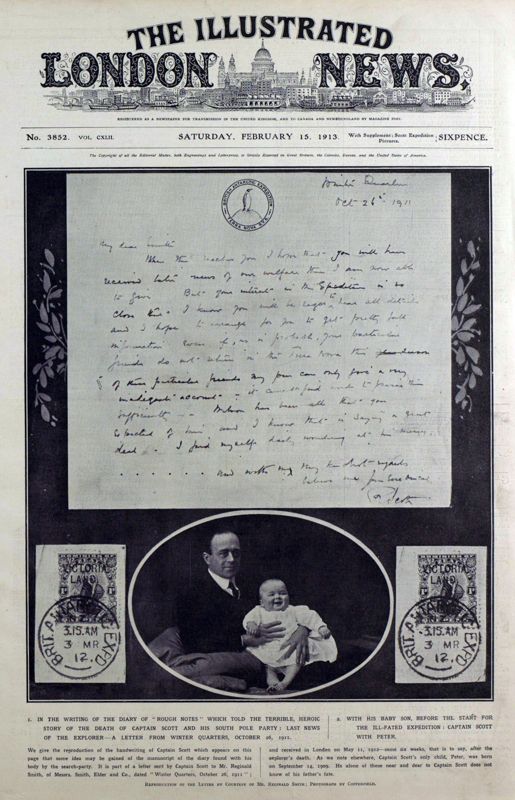 THE ILLUSTRATED
LONDON NEWS,
REGISTERED AS A NEWSPAPER FOR TRANSMISSION IN THE UNITED KINGDOM, AND TO CANADA AND NEWFOUNDLAND BY MAGAZINE POST.
No. 3852. VOL. CXLII. SATURDAY, FEBRUARY 15, 1913. With Supplement: Scott Expedition Pictures. SIXPENCE.
The Copyright of all the Editorial Matter, both Engravings and Letterpress, is Strictly Reserved in Great Britain, the Colonies, Europe, and the United States of America.
BRITISH ANTARCTIC EXPEDITION
TERRA NOVA R.Y.S.
Winter Quarters
Oct 26th 1911
My dear Smith
When this reaches you I hope that you will have
received later news of our welfare than I am now able
to give. But your interest in the Expedition is so
close that I know you will be eager to hear all details
and I hope to arrange for you to get pretty full
information even if, as is probable, your particular
friends do not return in the Terra Nova this
Of these particular friends my pen can only give a very
inadequate account - it
sufficiently - Wilson has been all that you
expected of him and I know that is saying a great
deal - I find myself daily wondering at his
And with my very kindest regards
believe me yours
R Scott
VICTORIA
LAND.
BRIT. ANTARCTIC EXPD
3.15.AM
3 MR
12.
VICTORIA
LAND.
BRIT. ANTARCTIC EXPD
3.15.AM
3 MR
12.
1. IN THE WRITING OF THE DIARY OF "ROUGH NOTES" WHICH TOLD THE TERRIBLE, HEROIC
STORY OF THE DEATH OF CAPTAIN SCOTT AND HIS SOUTH POLE PARTY: LAST NEWS
OF THE EXPLORER—A LETTER FROM WINTER QUARTERS, OCTOBER 26, 1911.
2. WITH HIS BABY SON, BEFORE THE START FOR
THE ILL-FATED EXPEDITION: CAPTAIN SCOTT
WITH PETER.
We give the reproduction of the handwriting of Captain Scott which appears on this
page that some idea may be gained of the manuscript of the diary found with his
body by the search-party. It is part of a letter sent by Captain Scott to Mr. Reginald
Smith, of Messrs. Smith, Elder and Co., dated "Winter Quarters, October 26, 1911";
and received in London on May 11, 1912—some six weeks, that is to say, after the
explorer's death. As we note elsewhere, Captain Scott's only child, Peter, was born
on September 14, 1909. He alone of those near and dear to Captain Scott does not
know of his father's fate.
REPRODUCTION OF THE LETTER BY COURTESY OF MR. REGINALD SMITH; PHOTOGRAPH BY